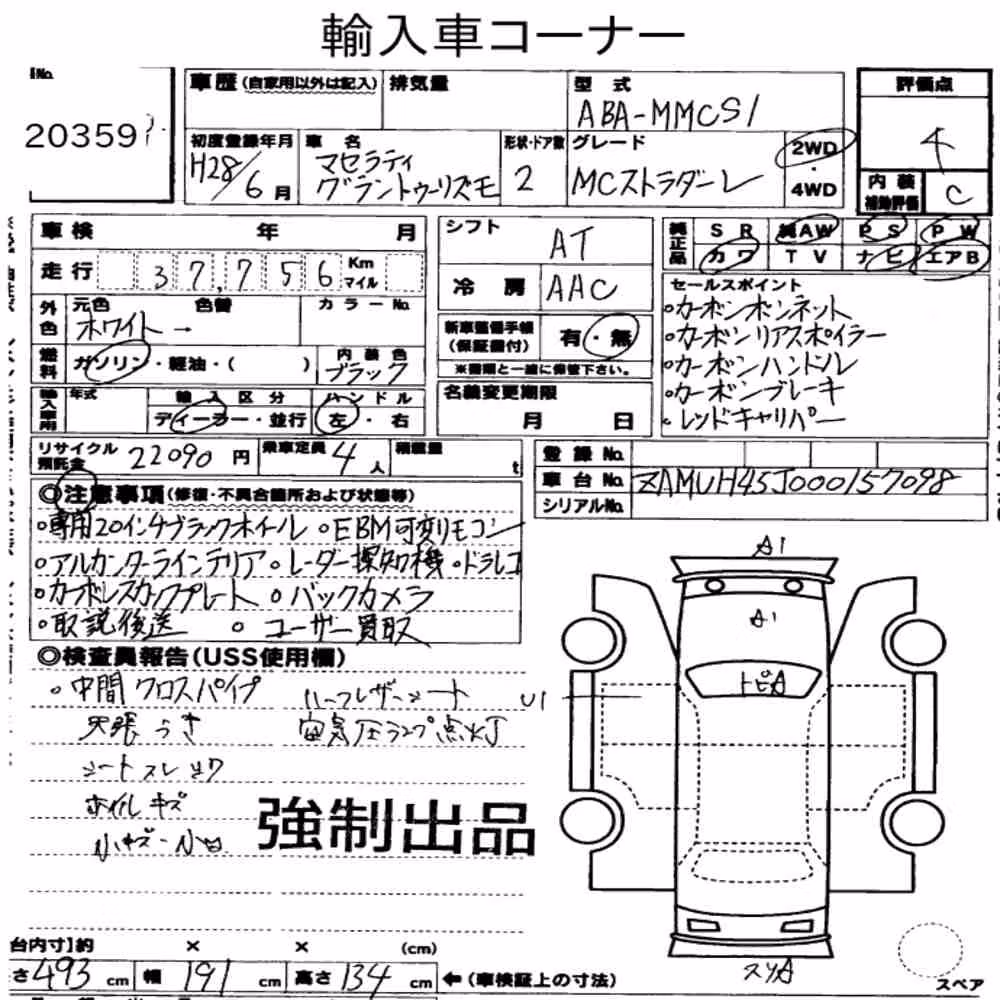 輸入車コーナー
No.
20359
車歴 (自家用以外は記入)
排気量
型式
ABA-MMCS1
評価点
4
初度登録年月
H28/6月
車名
マセラティ
グラントゥーリズモ
形状・ドア数
2
グレード
MCストラダーレ
2WD
・
4WD
内装
補助評価
C
車検 年 月
シフト
AT
純正品
SR 純AW PS PW
カワ TV ナビ エアB
走行 37,756 Km マイル
冷房
AAC
セールスポイント
◦カーボンボンネット
◦カーボンリアスポイラー
◦カーボンハンドル
◦カーボンブレーキ
◦レッドキャリパー
外色
元色 色替
ホワイト→
カラーNo.
新車整備手帳
(保証書付)
有・無
※書類と一緒に保管下さい。
燃料
ガソリン・軽油・( )
内装色
ブラック
名義変更期限
月 日
輸入車用
年式
輸入区分
ディーラー・並行
ハンドル
左・右
リサイクル
預託金
22090円
乗車定員
4人
積載量
t
登録No.
車台No.
ZAMUH45J000157098
シリアルNo.
◎注意事項(修復・不具合箇所および状態等)
◦専用20インチブラックホイール ◦EBM可変リモコン
◦アルカンターラインテリア ◦レーダー探知機 ◦ドラレコ
◦カーボレスカップレート ◦バックカメラ
◦取説後送 ◦ユーザー買取
◎検査員報告(USS使用欄)
◦中間クロスパイプ
天張うき
シートスレ
ホイルキズ
小キズ・小凹
ハーフレザーシート
空気圧ランプ点灯
強制出品
A1
A1
トビA
U1
スリA
スペア
台内寸]約 × × (cm)
さ493cm 幅191cm 高さ134cm ←(車検証上の寸法)